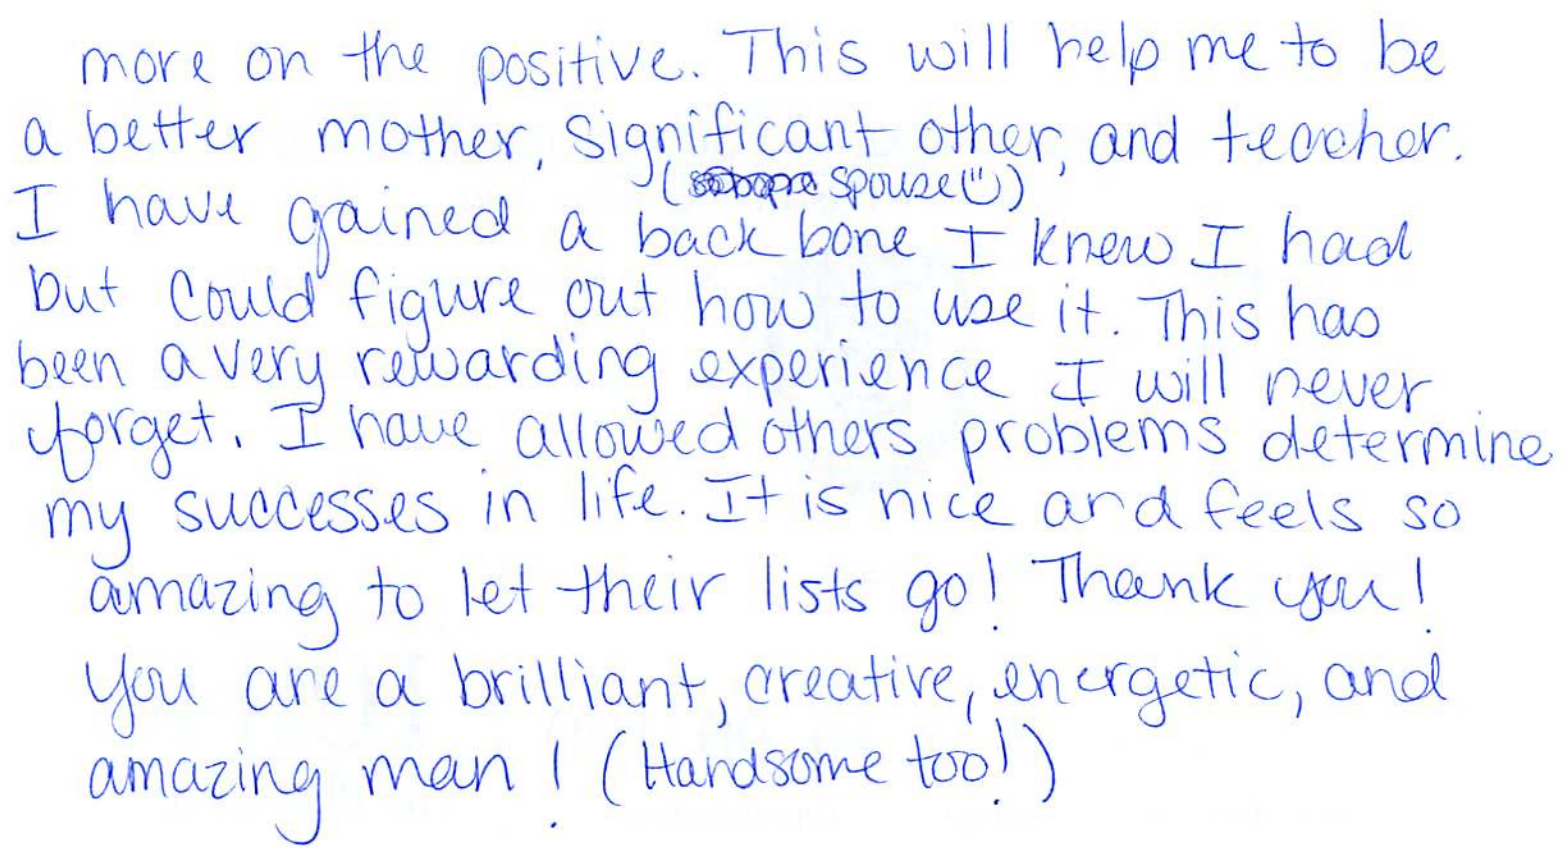 more on the positive. This will help me to be
a better mother, significant other, and teacher.
(spouse(ü))
I have gained a back bone I knew I had
but could figure out how to use it. This has
been a very rewarding experience I will never
forget. I have allowed others problems determine
my successes in life. It is nice and feels so
amazing to let their lists go! Thank you!
You are a brilliant, creative, energetic, and
amazing man! (Handsome too!)